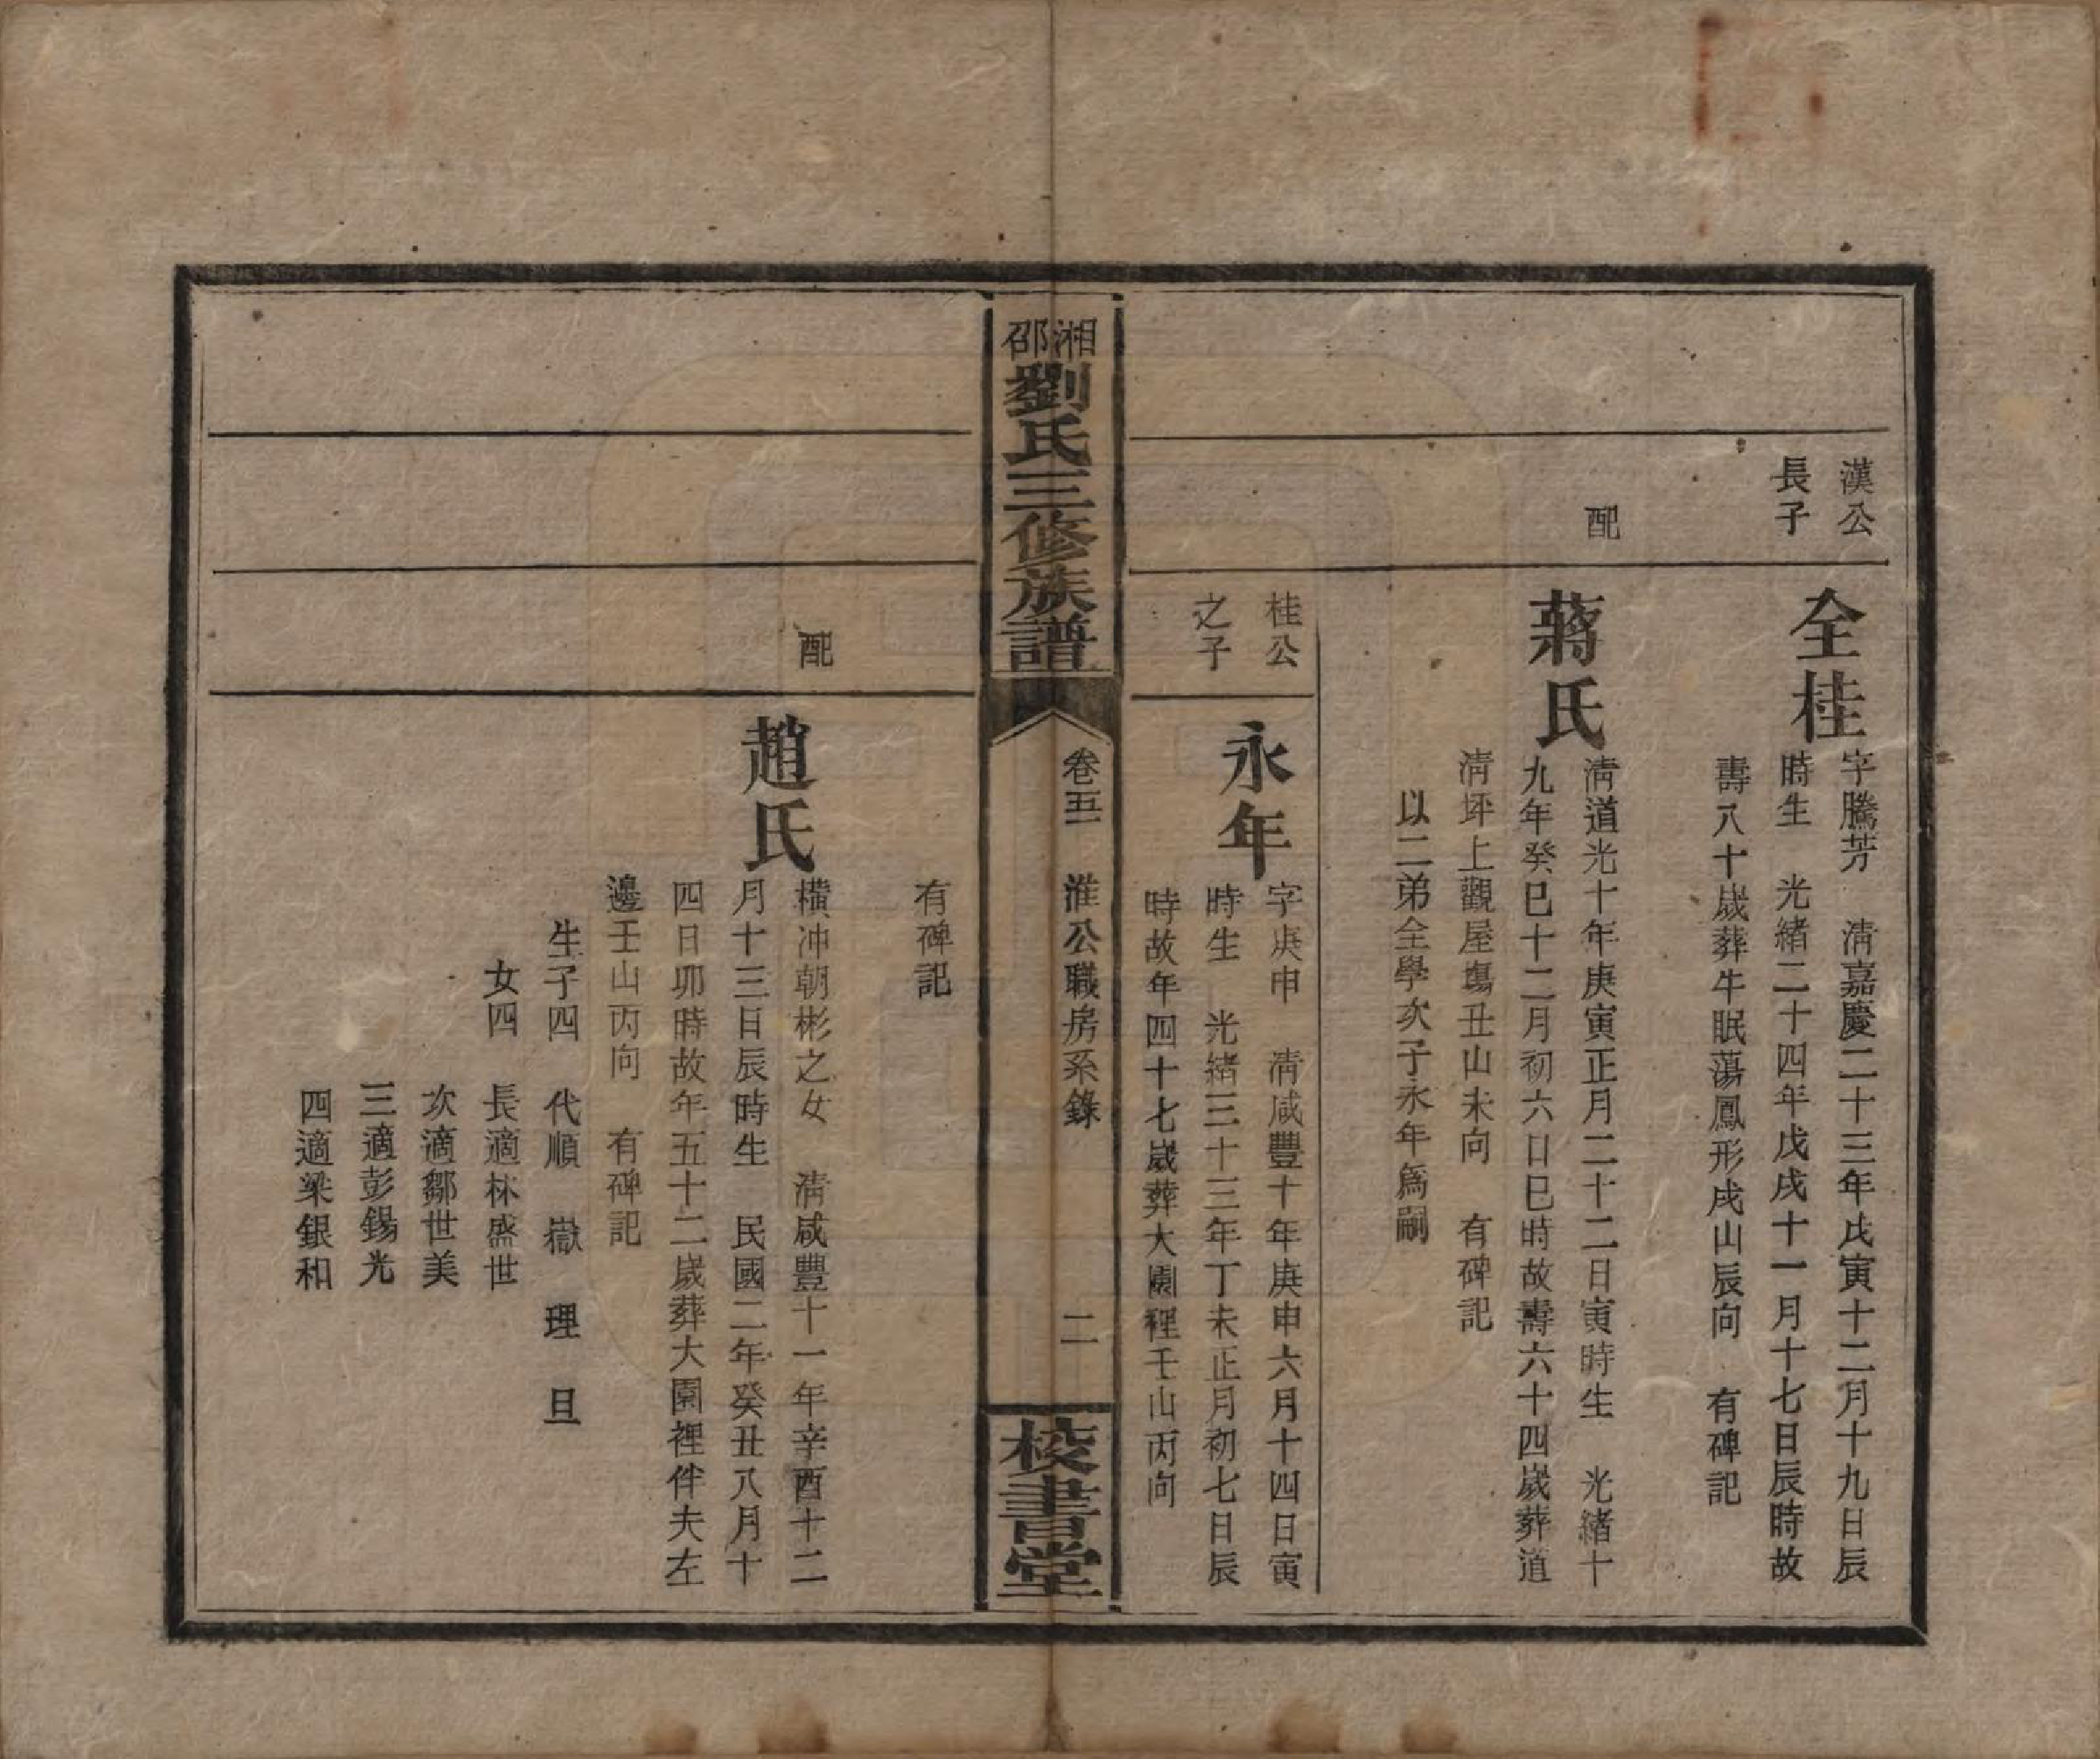 漢公
長子
全桂
字騰芳　清嘉慶二十三年戊寅十二月十九日辰
時生　光緒二十四年戊戌十一月十七日辰時故
壽八十歲葬牛眠蕩鳳形戌山辰向　有碑記
配
蔣氏
清道光十年庚寅正月二十二日寅時生　光緒十
九年癸巳十二月初六日巳時故壽六十四歲葬道
清坪上觀屋塲丑山未向　有碑記
以二弟全學次子永年爲嗣
桂公
之子
永年
字庚申　清咸豐十年庚申六月十四日寅
時生　光緒三十三年丁未正月初七日辰
時故年四十七歲葬大園裡壬山丙向
湘邵
劉氏三修族譜
卷五　淮公職房系錄　二
校書堂
有碑記
配
趙氏
橫冲朝彬之女　清咸豐十一年辛酉十二
月十三日辰時生　民國二年癸丑八月十
四日卯時故年五十二歲葬大園裡伴夫左
邊壬山丙向　有碑記
生子四　代順　嶽　理　旦
女四　長適林盛世
次適鄒世美
三適彭錫光
四適梁銀和